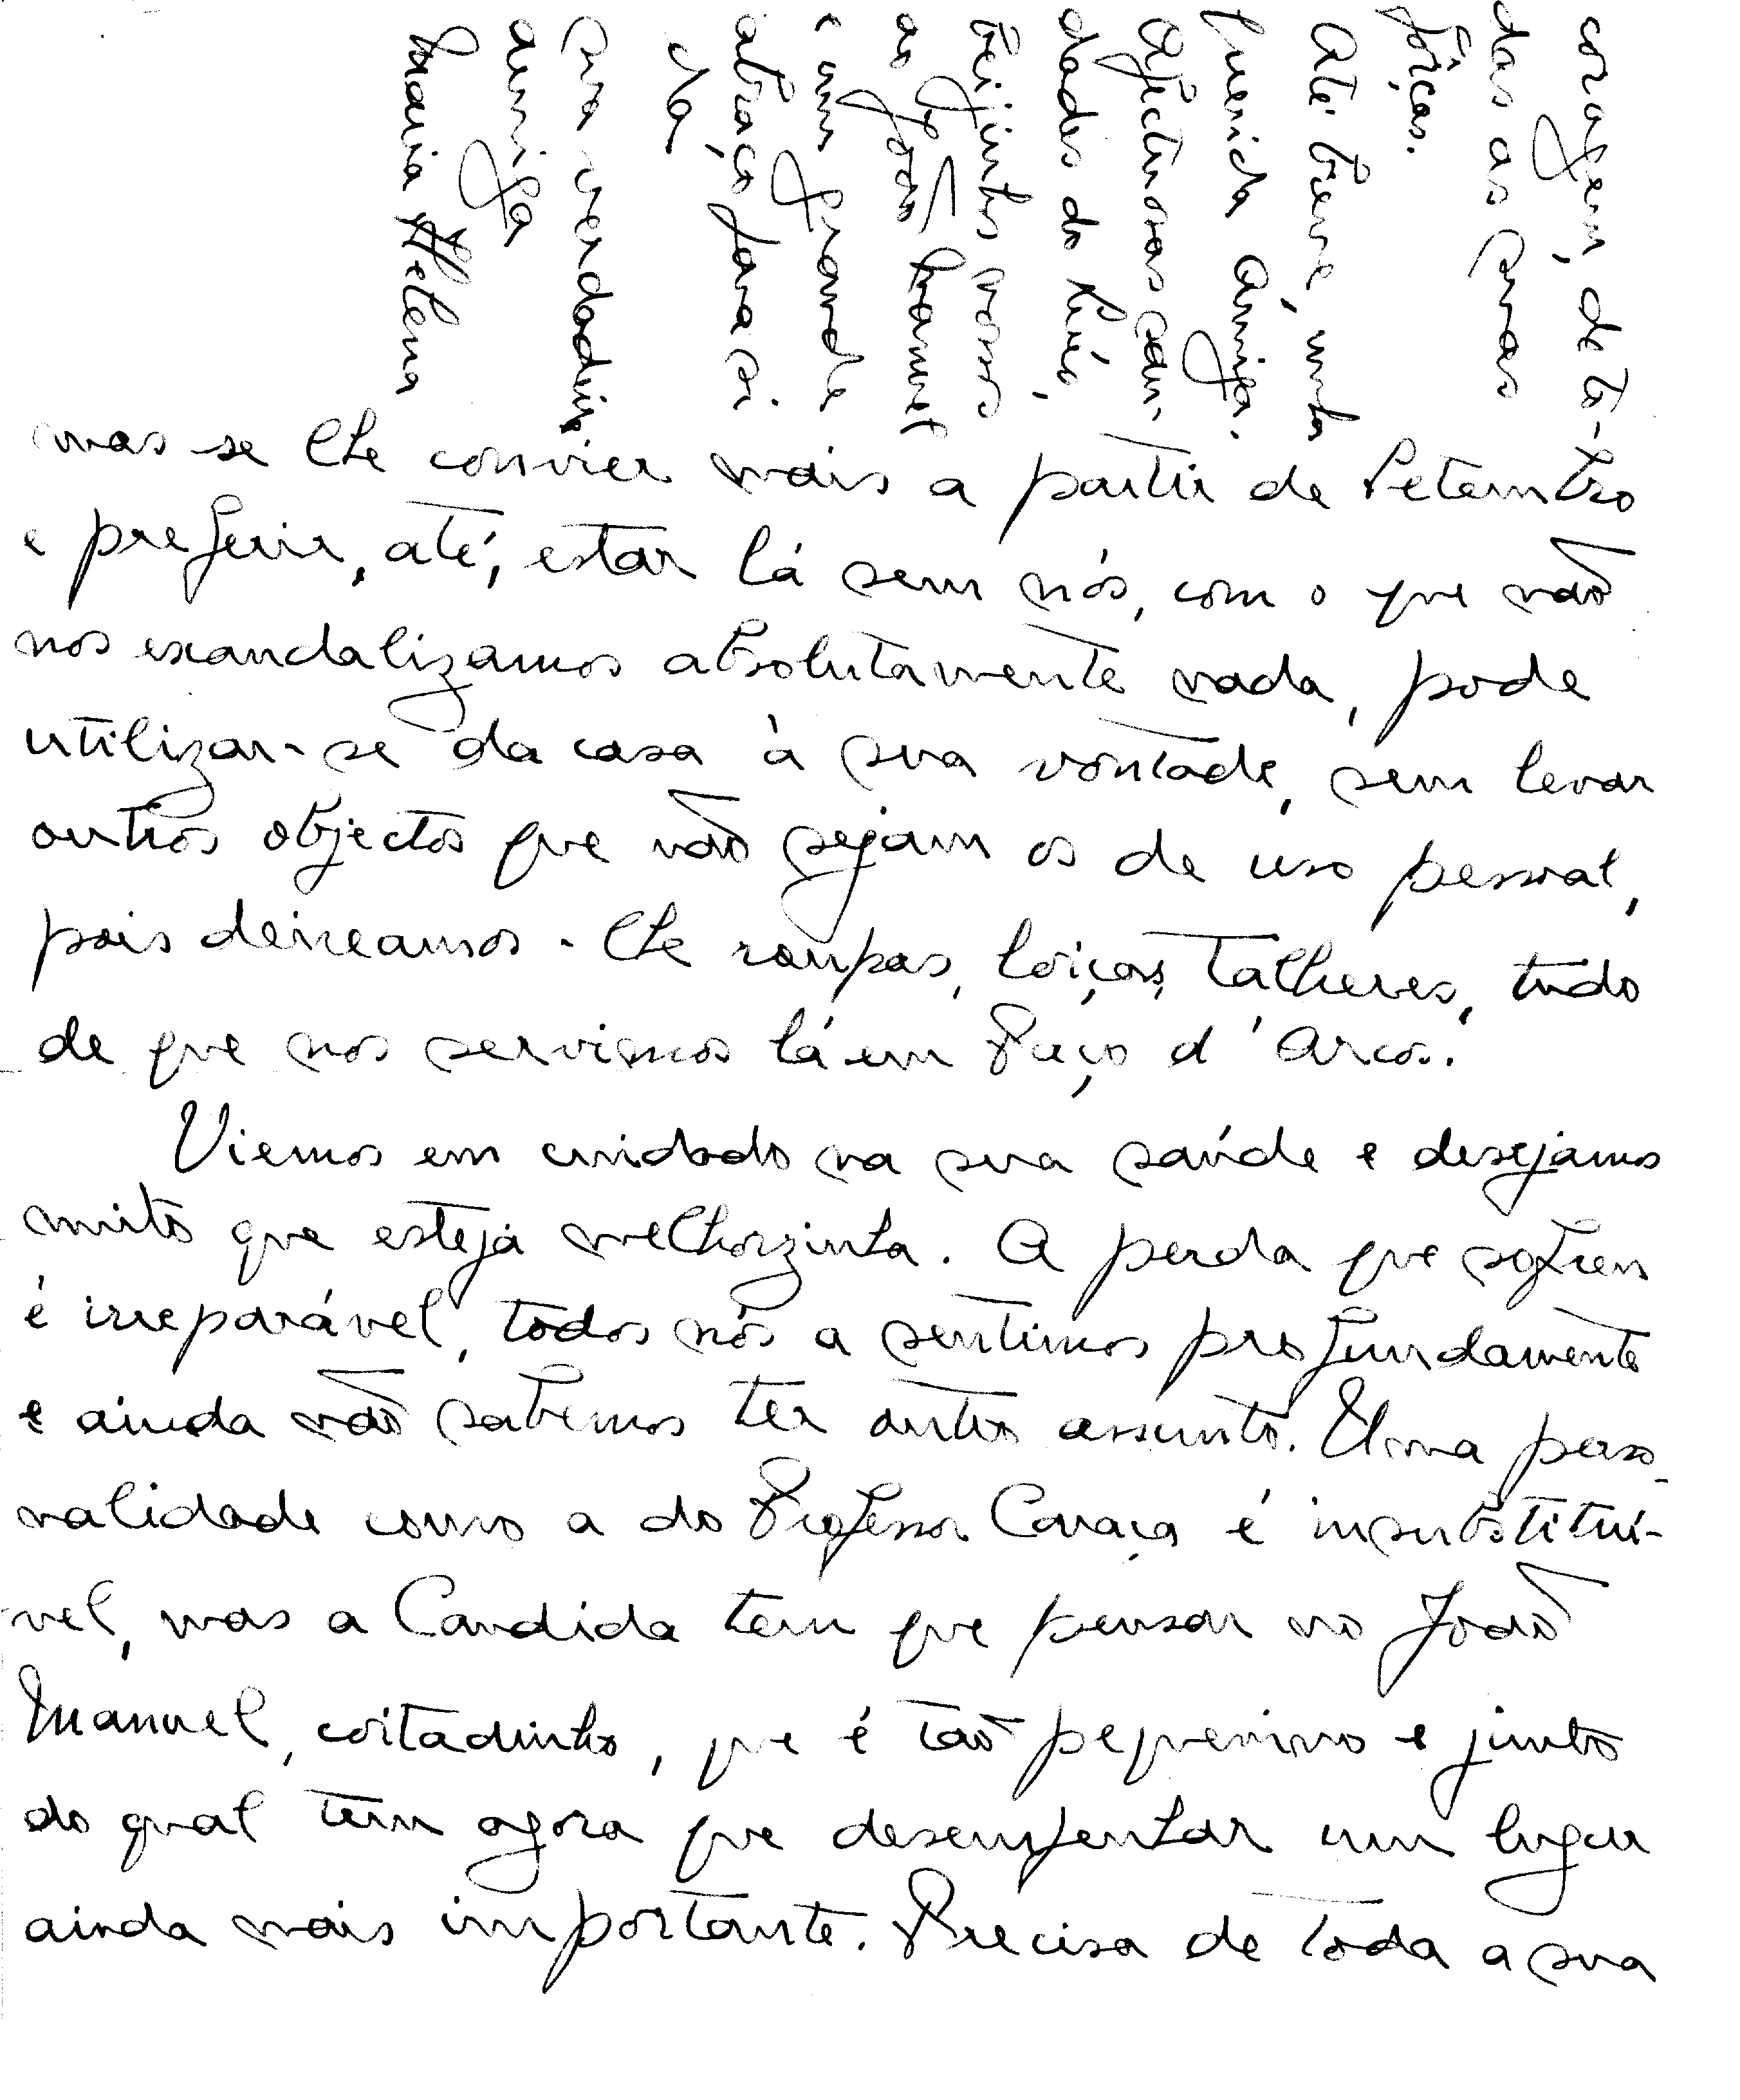 mas se lhe convier mais a partir de Setembro
e preferir, até, estar lá sem nós, com o que não
nos escandalizamos absolutamente nada, pode
utilizar-se da casa à sua vontade, sem levar
outros objectos que não sejam os de uso pessoal,
pois deixamos-lhe roupas, loiças, talheres, tudo
de que nos servimos lá em Paço d'Arcos.
Viemos em cuidado na sua saúde e desejamos
muito que esteja melhorzinha. A perda que sofreu
é irreparável, todos nós a sentimos profundamente
e ainda não sabemos ter outro assunto. Uma perso-
nalidade como a do Professor Caraça é insubstituí-
vel, mas a Candida tem que pensar no João
Manuel, coitadinho, que é tão pequenino e junto
do qual tem agora que desempenhar um lugar
ainda mais importante. Precisa de toda a sua
coragem, de to-
das as suas
fôrças.
Até breve, minha
querida Amiga.
Afectuosas sau-
dades do Luís,
beijinhos nossos
ao João Manuel
e um grande
abraço para si
da
sua verdadeira
amiga
Maria Helena